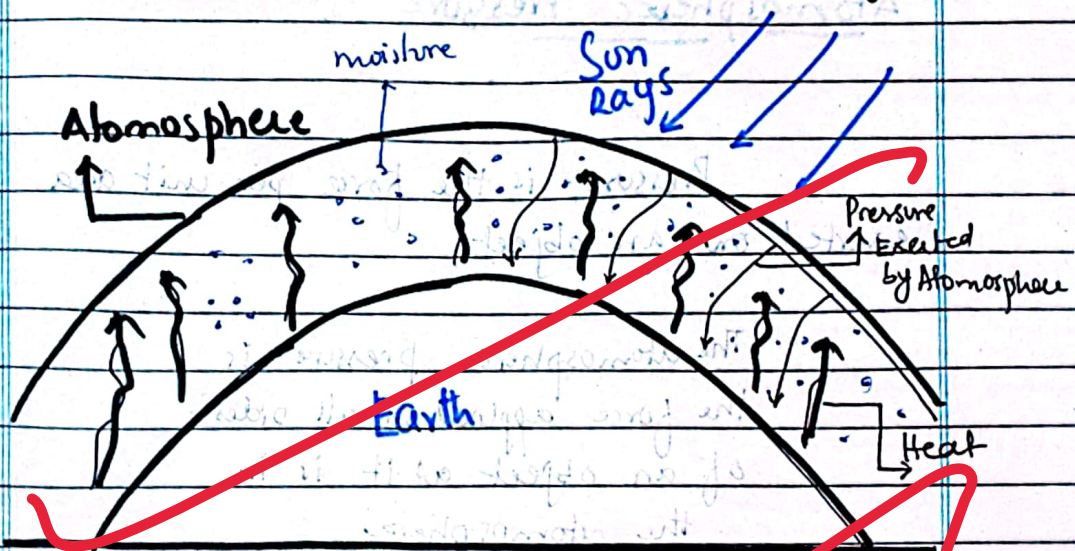 moisture
Sun
Rays
Atomosphere
Pressure
Exerted
by Atomosphere
Earth
Heat